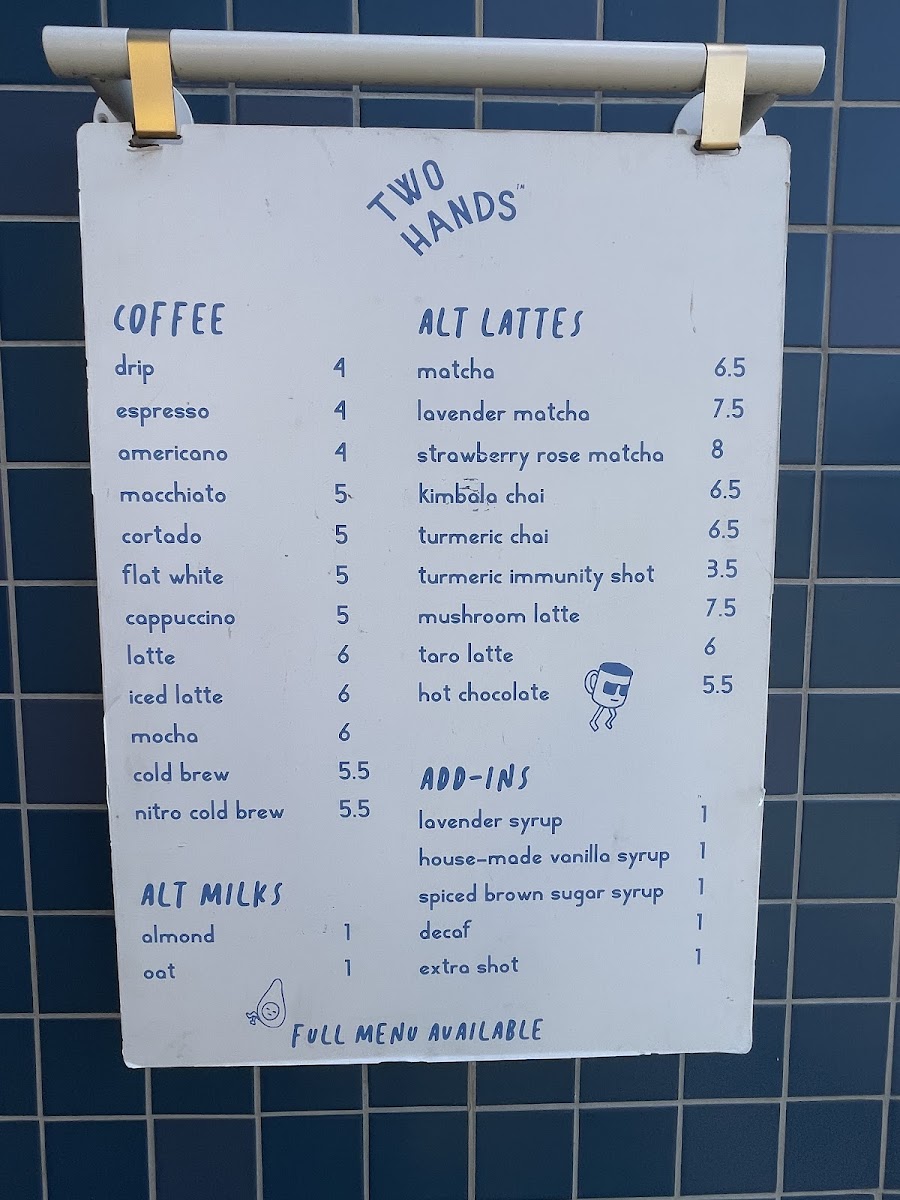 TWO
HANDS™
COFFEE
drip 4
espresso 4
americano 4
macchiato 5
cortado 5
flat white 5
cappuccino 5
latte 6
iced latte 6
mocha 6
cold brew 5.5
nitro cold brew 5.5
ALT MILKS
almond 1
oat 1
ALT LATTES
matcha 6.5
lavender matcha 7.5
strawberry rose matcha 8
kimbala chai 6.5
turmeric chai 6.5
turmeric immunity shot 3.5
mushroom latte 7.5
taro latte 6
hot chocolate 5.5
ADD-INS
lavender syrup 1
house-made vanilla syrup 1
spiced brown sugar syrup 1
decaf 1
extra shot 1
FULL MENU AVAILABLE